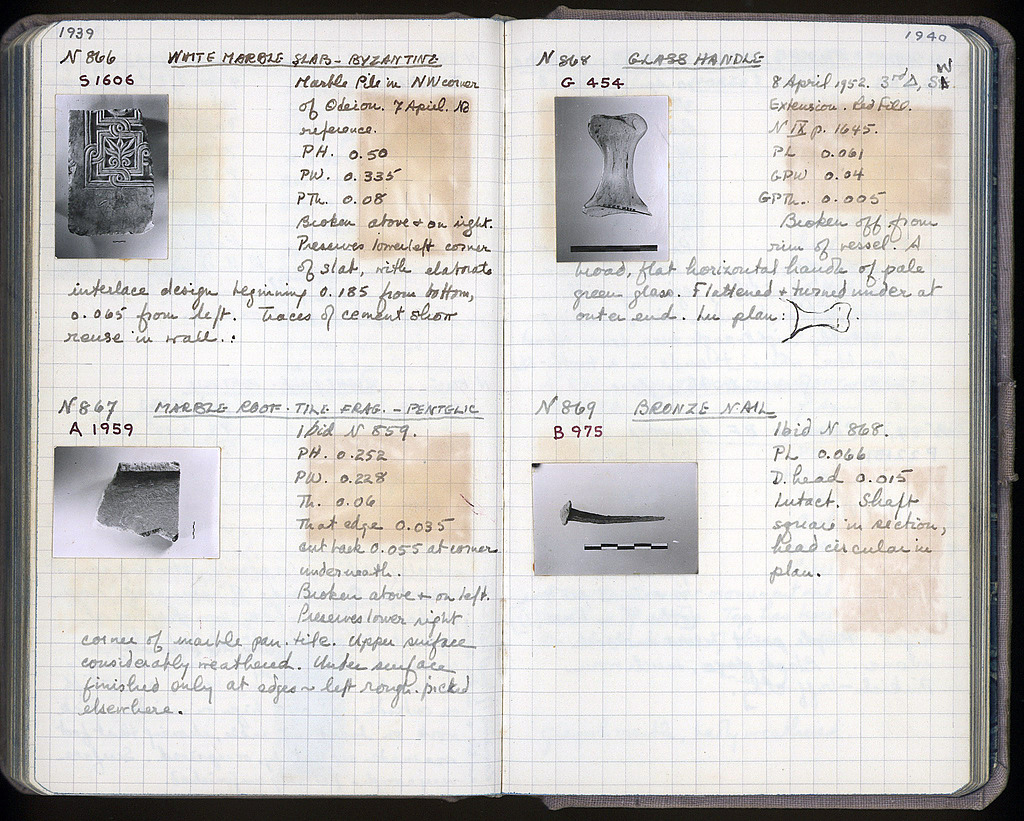 1939
N 866 WHITE MARBLE SLAB - BYZANTINE
S 1606
Marble Pile in NW corner
of Odeion. 7 April. No
reference.
PH. 0.50
PW. 0.335
PTh. 0.08
Broken above + on right.
Preserves lower left corner
of slab, with elaborate
interlace design beginning 0.185 from bottom,
0.065 from left. Traces of cement show
reuse in wall.
N 867 MARBLE ROOF-TILE FRAG. - PENTELIC
A 1959
Ibid N 859.
PH. 0.252
PW. 0.228
Th. 0.06
Th at edge 0.035
cut back 0.055 at corner
underneath.
Broken above + on left.
Preserves lower right
corner of marble pan-tile. Upper surface
considerably weathered. Under surface
finished only at edges + left rough-picked
elsewhere.
1940
N 868 GLASS HANDLE
G 454
8 April 1952. 3rd Δ, SW
Extension. Red Fill.
N IX p. 1645.
PL 0.061
GPW 0.04
GPTh. 0.005
Broken off from
rim of vessel. A
broad, flat horizontal handle of pale
green glass. Flattened + turned under at
outer end. In plan:
N 869 BRONZE NAIL
B 975
Ibid N 868.
PL 0.066
D. head 0.015
Intact. Shaft
square in section,
head circular in
plan.